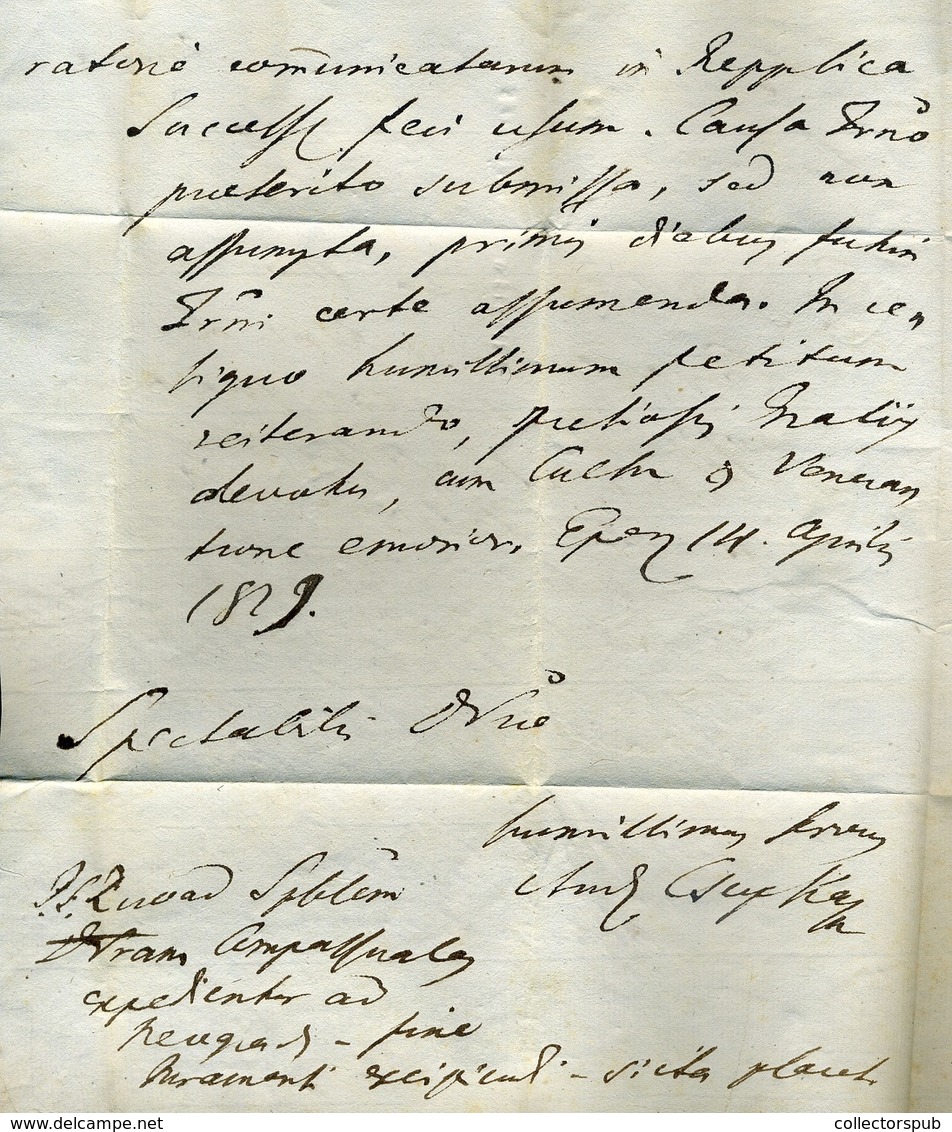 ratione com̄unicatarum in Repplica
Successe feci usum. Causa Trn̄o
praeterito submissa, sed non
assumpta, primis diebus futuri
Trn̄i certe assumenda. In re
liquo humillimum petitum
reiterando, pretiosis Gratiis
devotus, cum Cultu & Veneran
tione emorior. Eperj 14. Aprilis
1829.
Spectabilis Dn̄e
humillimus servus
And
P.S. Quoad Spblem
Dn̄ram Compassuales
expedientur ad
Neograd – fine
Juramenti excipiendi – si ita placet.
collectorspub